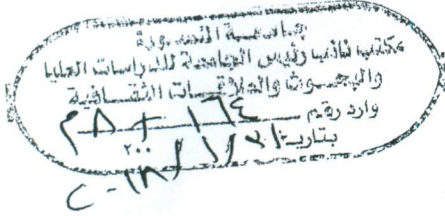 جامعة المنصورة
مكتب نائب رئيس الجامعة للدراسات العليا
والبحوث والعلاقات الثقافية
وارد رقم ١٦٤
بتاريخ